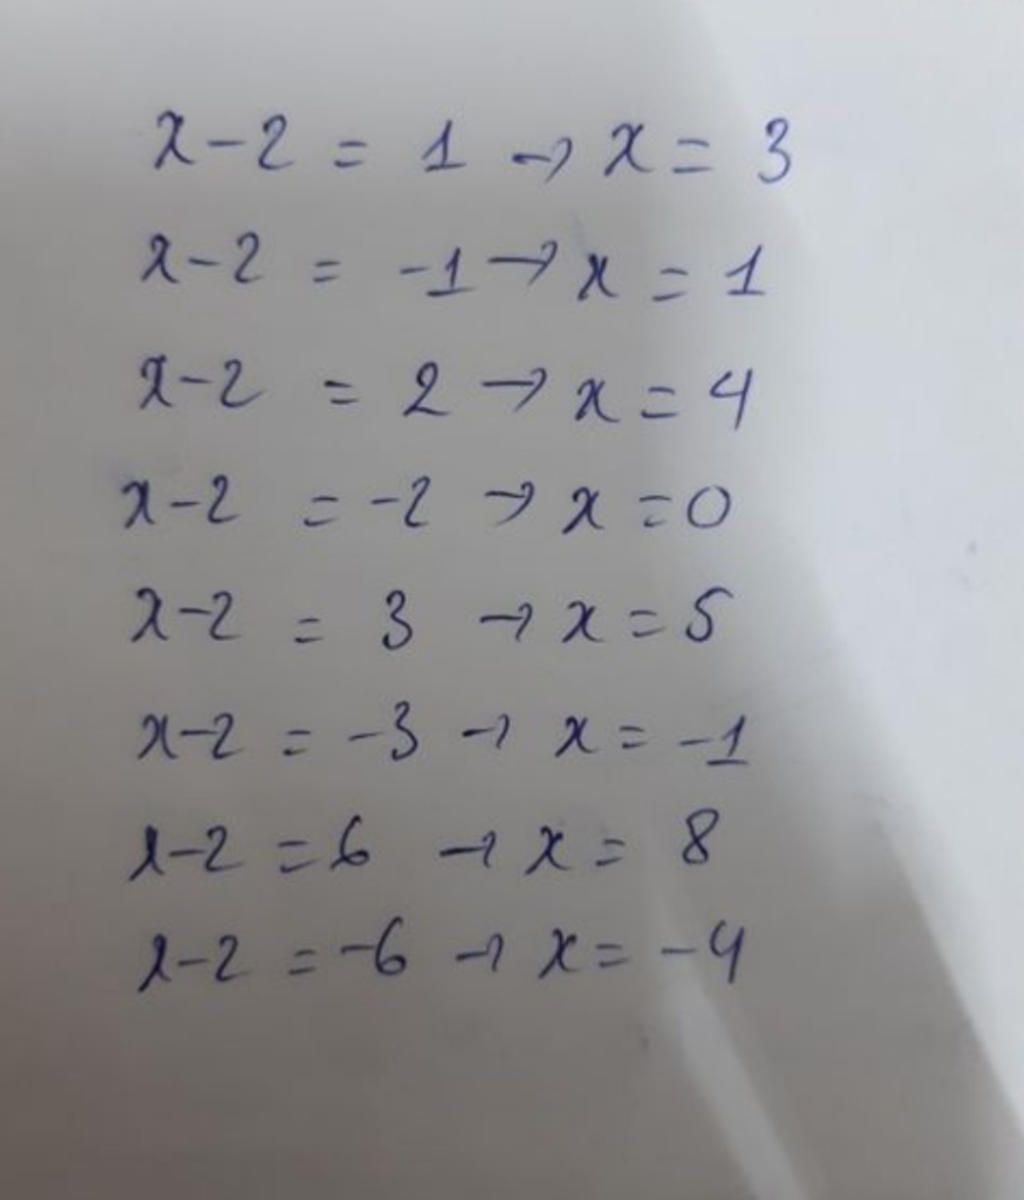 x-2 = 1 → x = 3
x-2 = -1 → x = 1
x-2 = 2 → x = 4
x-2 = -2 → x = 0
x-2 = 3 → x = 5
x-2 = -3 → x = -1
x-2 = 6 → x = 8
x-2 = -6 → x = -4